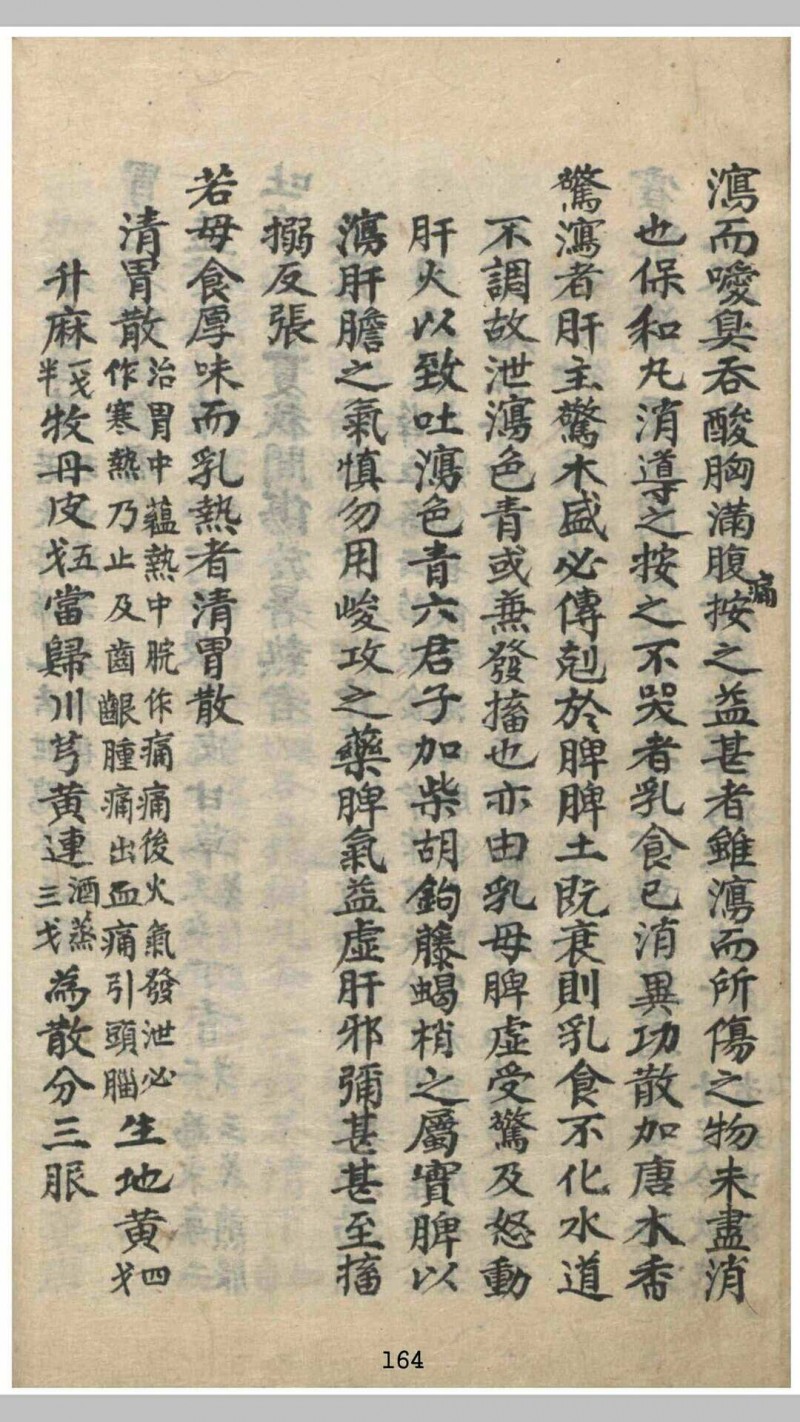 瀉而噯臭吞酸胸滿腹痛按之益甚者雖瀉而所傷之物未盡消
也保和丸消導之按之不哭者乳食已消異功散加唐木香
驚瀉者肝主驚木盛必傳剋於脾脾土既衰則乳食不化水道
不調故泄瀉色青或兼發搐也亦由乳母脾虛受驚及怒動
肝火以致吐瀉色青六君子加柴胡鉤藤蝎梢之屬實脾以
瀉肝膽之氣慎勿用峻攻之藥脾氣益虛肝邪彌甚甚至搐
搦反張
若母食厚味而乳熱者清胃散
清胃散治胃中蘊熱中脘作痛痛後火氣發泄必
作寒熱乃止及齒齦腫痛出血痛引頭腦生地黄四戈
升麻一戈半牧丹皮五戈當歸川芎黄連酒蒸三戈為散分三服
164